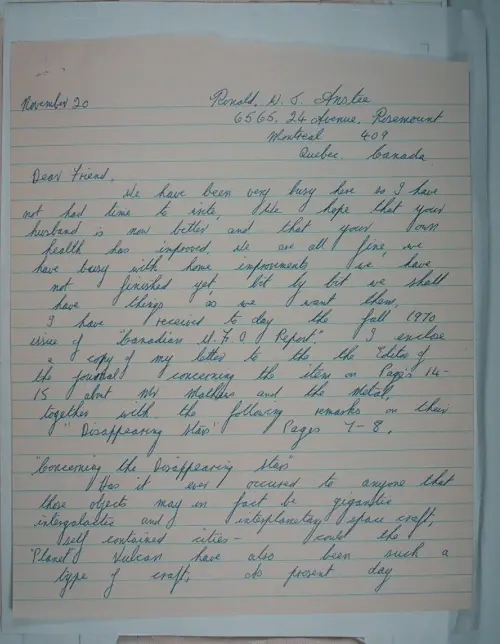 November 20
Ronald. W. J. Anstee
6565, 24 Avenue, Rosemount
Montreal 409
Quebec. Canada
Dear Friend,
We have been very busy here so I have
not had time to write, We hope that your
husband is now better, and that your own
health has improved, we are all fine, we
have busy with home improvments we have
not finished yet, bit by bit we shall
have things as we want them,
I have received to day the fall 1970
issue of "Canadian U.F.O Report." I enclose
a copy of my letter to the the Editor of
the journal concerning the item on Pages 14-
15 about Mr Mathers and the Metal,
together with the following remarks on their
"Disappearing Stars" Pages 7-8.
"Concerning the Disappearing Stars"
Has it ever occured to anyone that
these objects may in fact be gigantic
intergalactic and interplanetary space craft,
self contained cities- could the
"Planet" Vulcan have also been such a
type of craft, As present day